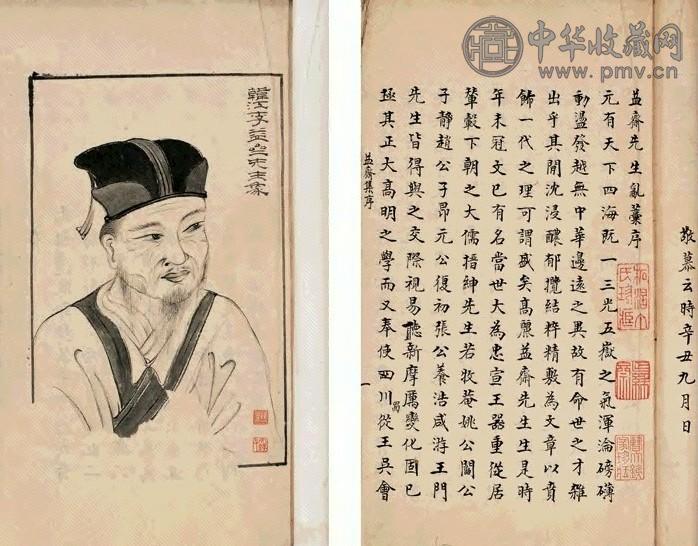 中华收藏网
www.pmv.cn
敬慕云時辛丑九月日
益齋先生亂藁序
元有天下四海既一三光五嶽之氣渾淪磅礴
動盪發越無中華邊遠之異故有命世之才雜
出乎其間沈浸醲郁攬結粹精敷為文章以賁
飾一代之理可謂盛矣高麗益齋先生生是時
年未冠文已有名當世大為忠宣王器重從居
輦轂下朝之大儒搢紳先生若牧菴姚公閻公
子靜趙公子昂元公復初張公養浩咸游王門
先生皆得與之交際視易聽新摩厲變化固已
極其正大高明之學而又奉使四川從王吳會
蜀
益齋集序
一